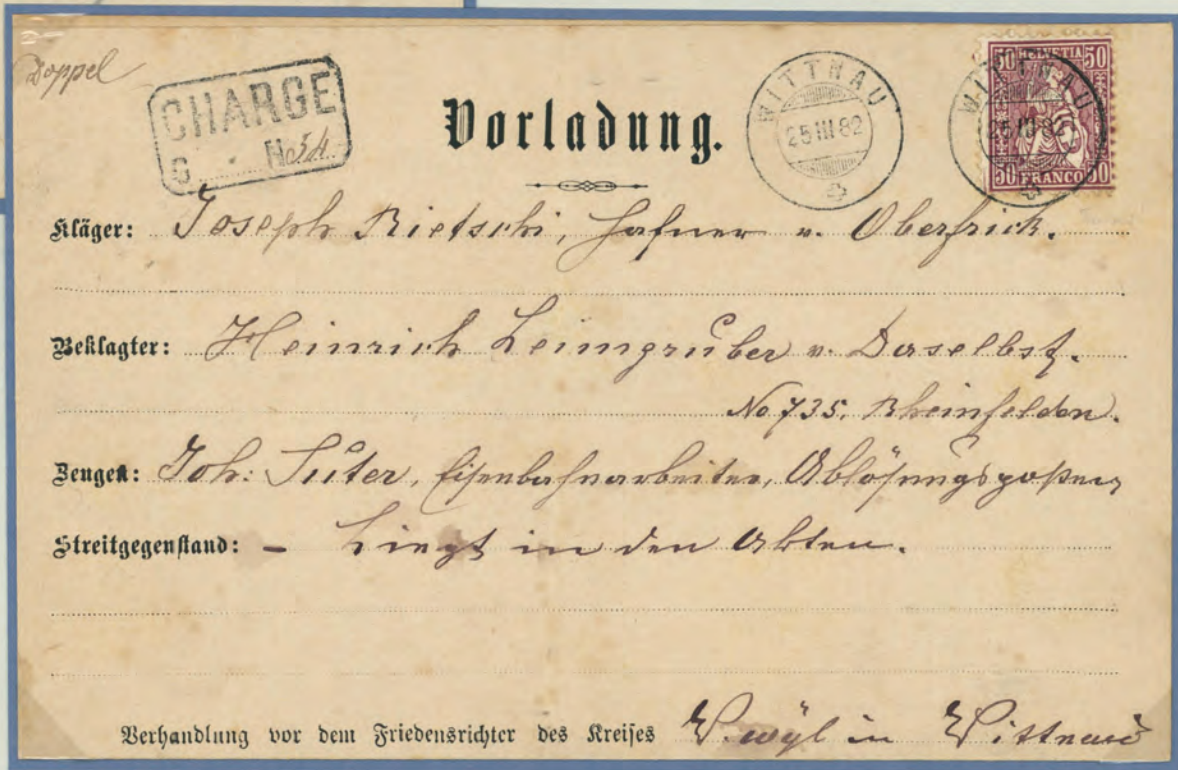 Doppel
CHARGE
G. No 34
Vorladung.
WITTNAU
25 III 82
50 HELVETIA 50
WITTNAU
25 III 82
50 FRANCO 50
Kläger: Joseph Rietschi, Hafner v. Oberfrick.
Beklagter: Heinrich Leimgruber v. Daselbst.
No 735, Rheinfelden.
Zeugen: Joh: Suter, Eisenbahnarbeiter, Ablösungsposten
Streitgegenstand: - Liegt in den Akten.
Verhandlung vor dem Friedensrichter des Kreises W.wÿl in Wittnau